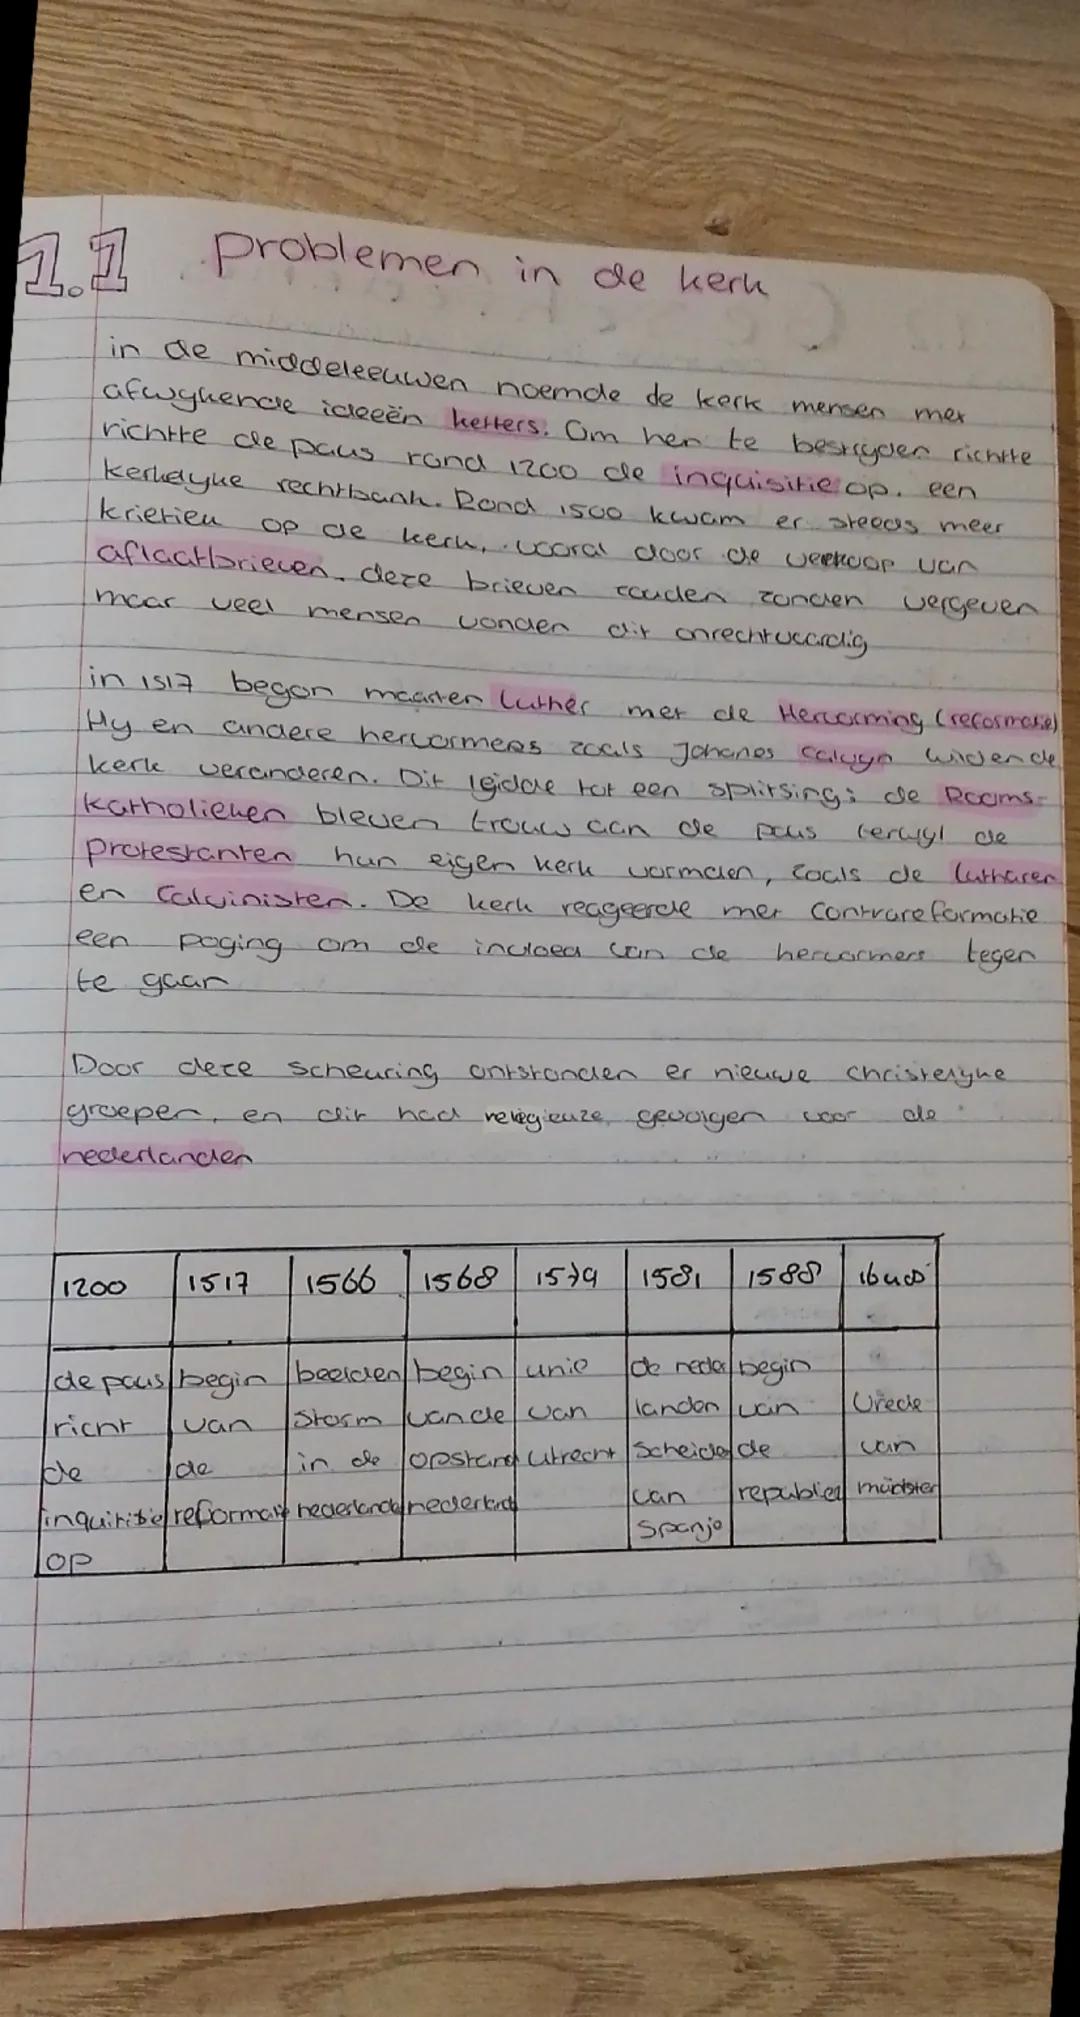 1.1 problemen in de kerk
in de middeleeuwen noemde de kerk mensen met
afwykende ideeën ketters. Om hen te bestryden richtte
richtte de paus rond 1200 de inquisitie op. een
kerkelyke rechtbank. Rond 1500 kwam er steeds meer
krietiek op de kerk, vooral door de verkoop van
aflaatbrieven. deze brieven zouden zonden vergeven
maar veel mensen vonden dit onrechtvaardig
in 1517 begon maarten luther met de Hervorming (reformatie)
Hy en andere hervormers zoals Johanes calvyn wilden de
kerk veranderen. Dit leidde tot een splitsing: de Rooms-
katholieken bleven trouw aan de paus terwyl de
protestanten hun eigen kerk vormden, zoals de lutharen
en Calvinisten. De kerk reageerde met Contrareformatie
een poging om de invloed van de hervormers tegen
te gaan
Door deze scheuring ontstonden er nieuwe christelyke
groepen, en dit had religieuze gevolgen voor de
nederlanden
1200 1517 1566 1568 1579 1581 1588 1648
de paus begin beelden begin unie de neder begin
richt van storm van de van landen van Vrede
de de in de opstand utrecht scheiden de van
inquisitie reformatie nederlanden nederland van republiek münster
op spanje